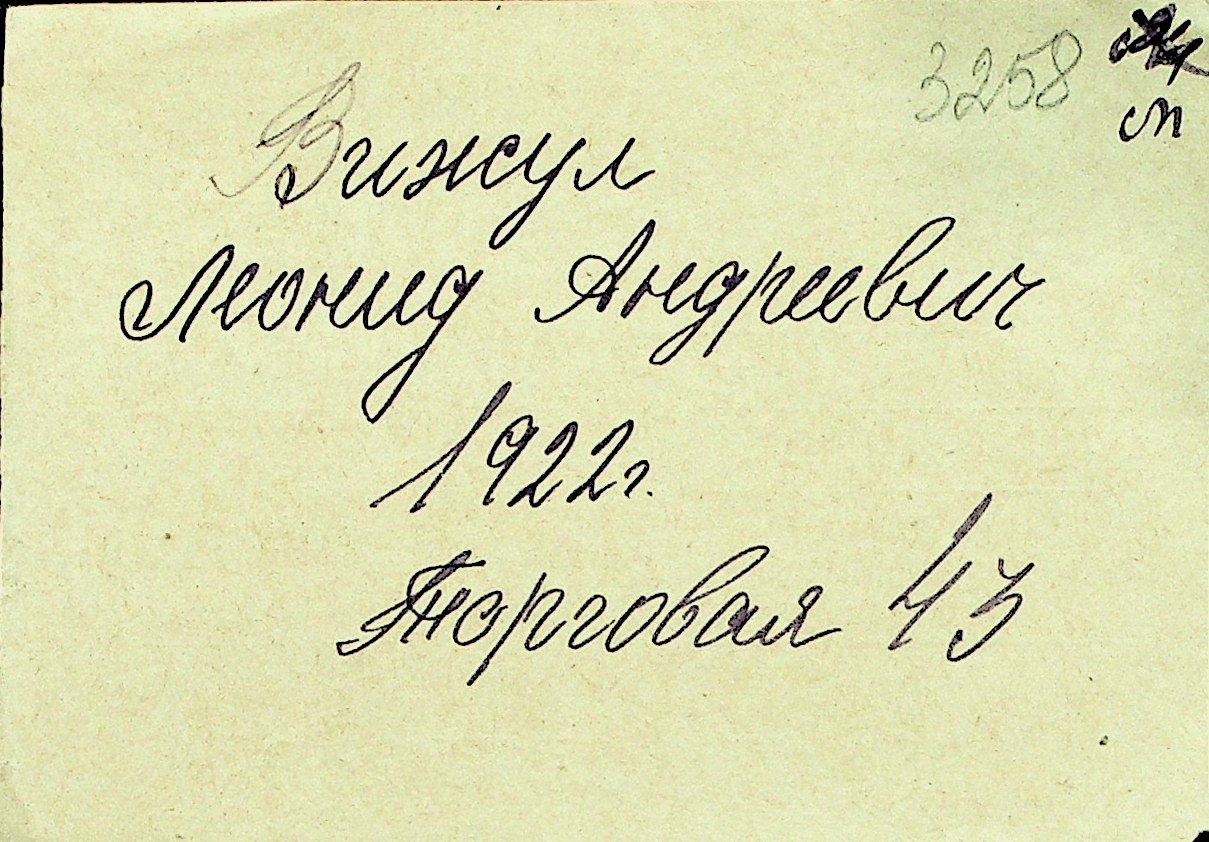 3258
Вижул
Леонид Андреевич
1922г.
Торговая 43